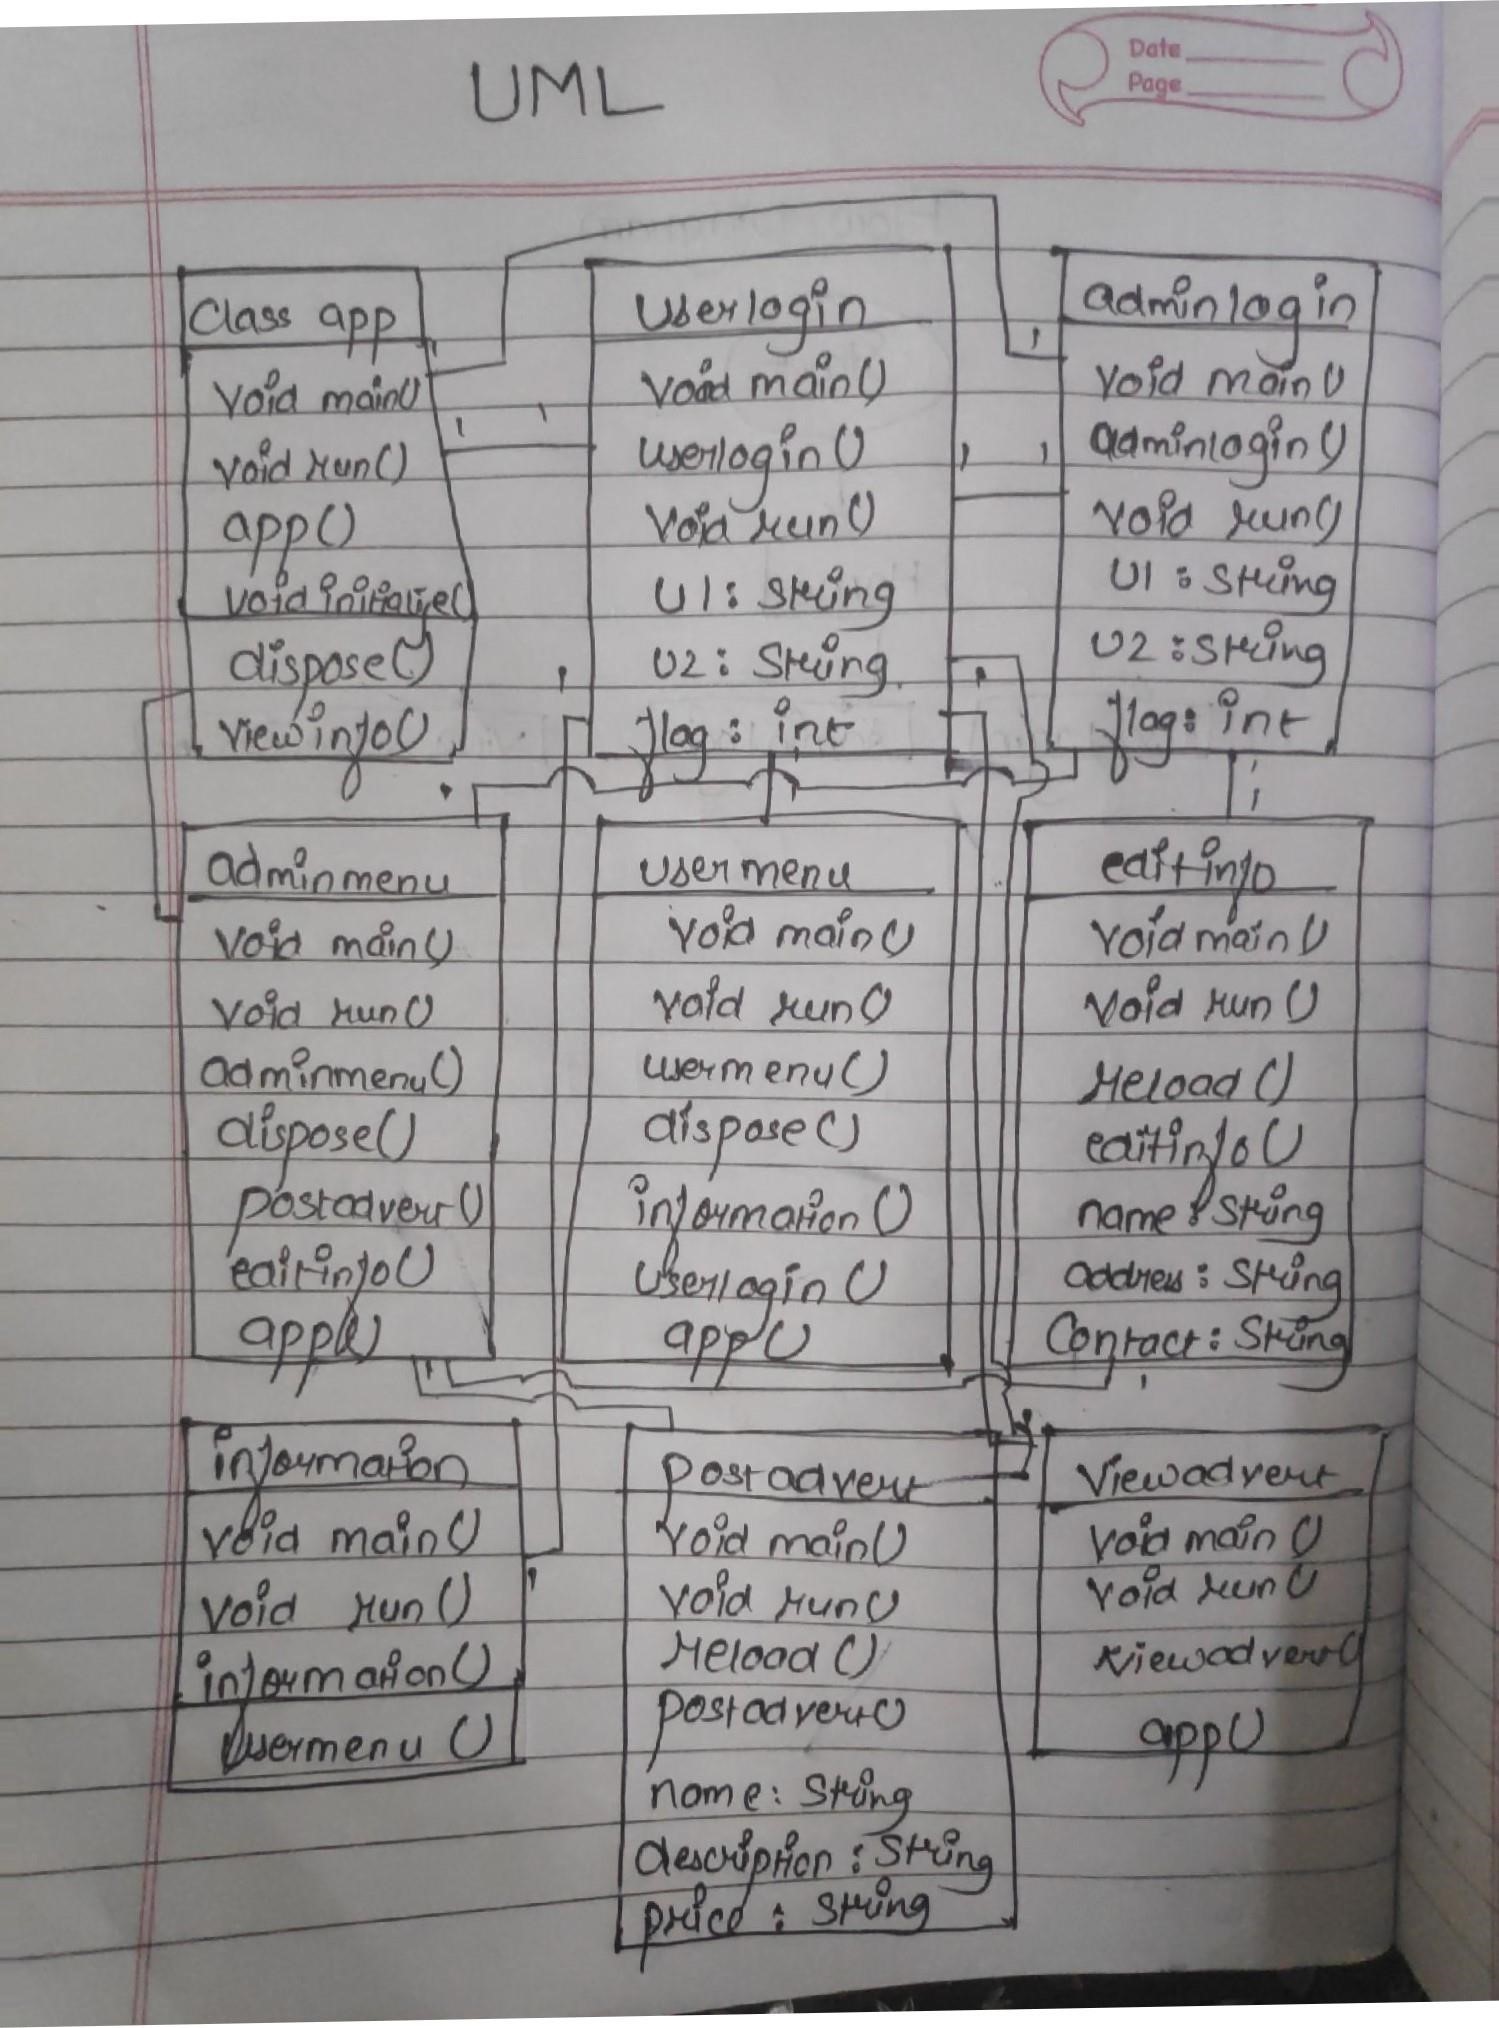 Date
Page
UML
Class app
void main()
void run()
app()
void initialize()
dispose()
viewinfo()
Userlogin
void main()
userlogin()
void run()
U1: String
U2: String
flag: int
adminlogin
void main()
adminlogin()
void run()
U1: String
U2: String
flag: int
adminmenu
void main()
void run()
adminmenu()
dispose()
postadvert()
editinfo()
app()
usermenu
void main()
void run()
usermenu()
dispose()
information()
Userlogin()
app()
editinfo
void main()
void run()
reload()
editinfo()
name: String
address: String
Contact: String
information
void main()
void run()
information()
Usermenu()
postadvert
void main()
void run()
reload()
postadvert()
name: String
description: String
price: String
viewadvert
void main()
void run()
viewadvert()
app()